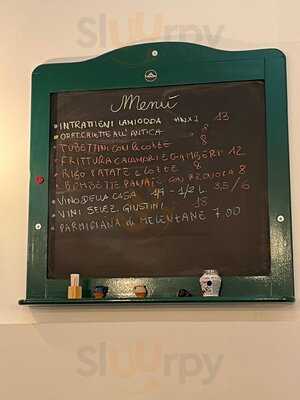 Menú
INTRATTIENI LAMIODDA MIN X 2 13
ORECCHIETTE ALL'ANTICA 8
TUBETTINI CON LE COZZE 8
FRITTURA CALAMARI E GAMBERI 12
RISO PATATE E COZZE 8
BOMBETTE PANATE CON PROVOLA 8
VINO DELLA CASA 1/4 - 1/2 L. 3,5 / 6
VINI SELEZ. GIUSTINI 18
PARMIGIANA di MELENZANE 7.00
Sluurpy
Sluurpy